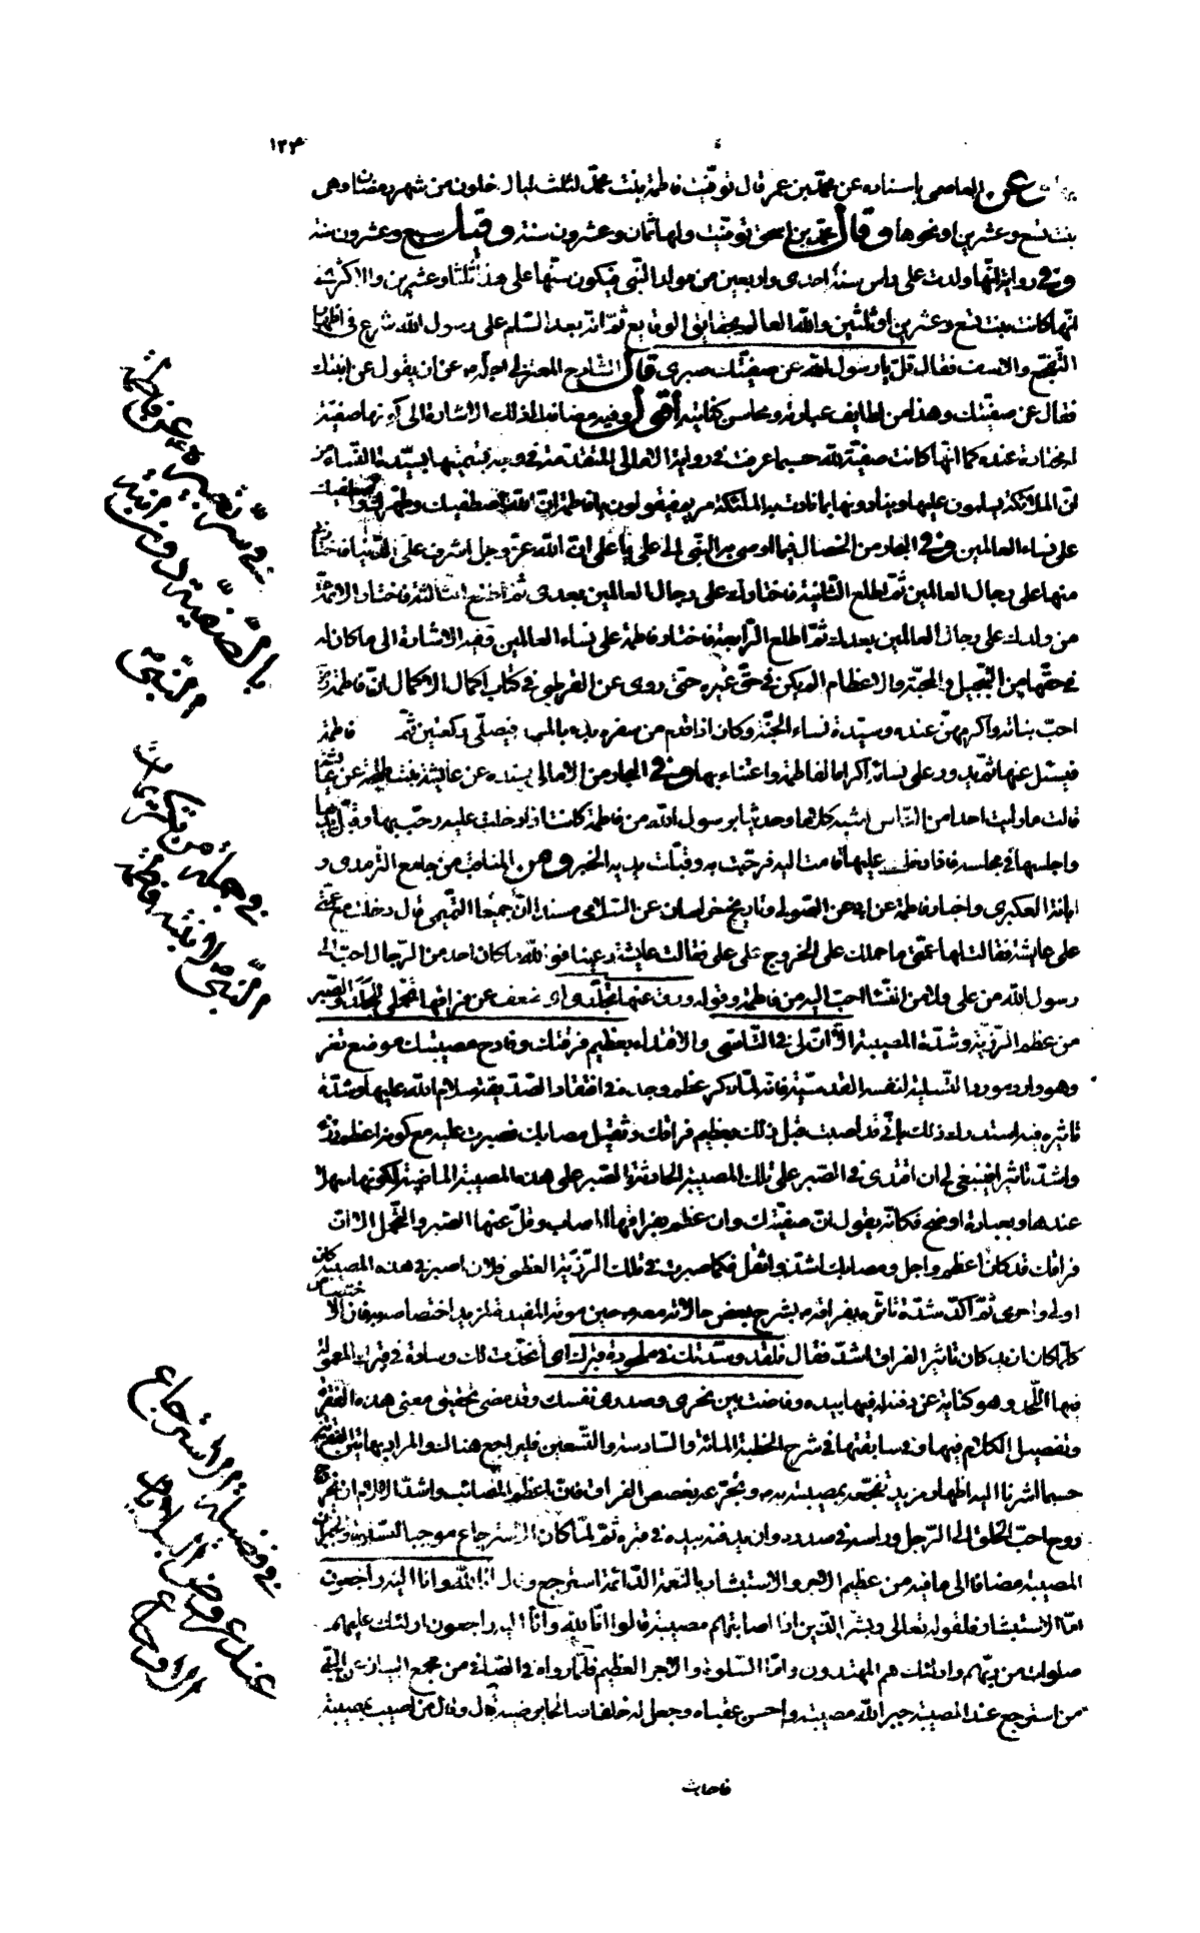 ١٢٣
عن العاصمى باسناده عن محمّد بن عمر قال توفّيت فاطمة بنت محمّد لثلث ليال خلون من شهر رمضان وهى
بنت تسع وعشرين او نحوها وقال محمّد بن اسحق توفّيت ولها ثمان وعشرون سنة وقيل سبع وعشرون سنة
وفى رواية انّها ولدت على راس سنة احدى واربعين من مولد النّبى فيكون سنّها على هذا ثلثا وعشرين والاكثر
انّها كانت بنت تسع وعشرين او ثلثين والله العالم بحقايق الوقايع ثمّ انّه بعد السّلم على رسول الله شرع فى اظهار
التّفجّع والاسف فقال قلّ يا رسول الله عن صفيّتك صبرى قال الشّارح المعتزلى اجلّه عن ان يقول عن ابنتك
فقال عن صفيّتك وهذا من لطايف عبارته ومحاسن كنايته اقول وفيه مضافا لذلك الاشارة الى كونها صفيّة
مختارة عنده كما انّها كانت صفيّة الله حسبما عرفت فى رواية الامالى المتقدّمة فى وجه تسميتها بسيّدة النّساء من
انّ الملائكة يسلمون عليها وينادونها بما نادت به الملئكة مريم فيقولون يا فاطمة انّ الله اصطفيك وطهّرك واصطفيك
على نساء العالمين وفى البحار من الخصال فيما اوصى به النّبى الى على يا على انّ الله عزّ وجل اشرف على الدّنيا فاختارنى
منها على رجال العالمين ثمّ اطلع الثّانية فاختارك على رجال العالمين بعدى ثمّ اطلع الثّالثة فاختار الائمّة
من ولدك على رجال العالمين بعدك ثمّ اطلع الرّابعة فاختار فاطمة على نساء العالمين وفيه الاشارة الى ما كان له
فى حقّها من التّبجيل والمحبّة والاعظام لم يكن فى حقّ غيره حتّى روى عن القرطبى فى كتاب اكمال الاكمال انّ فاطمة
احبّ بناته واكرمهنّ عنده وسيّدة نساء الجنّة وكان اذا قدم من سفره بدء بالمسجد فيصلّى ركعتين ثمّ فاطمة
فيسئل عنها ثمّ يدور على نسائه اكراما لفاطمة واعتناء بها وفى البحار من الامالى بسنده عن عايشة بنت طلحة عن عايشة
قالت ما رايت احدا من النّاس اشبه كلاما وحديثا برسول الله من فاطمة كانت اذا دخلت عليه رحّب بها وقبّل يديها
واجلسها فى مجلسه فاذا دخل عليها قامت اليه فرحّبت به وقبّلت يديه الخبر وهن المناقب من جامع الترمذى و
ابانة العكبرى واخبار فاطمة عن ابى الصّولى وتاريخ خراسان عن السّلامى مسندا انّ جميعا التّميمى قال دخلت مع عمّتى
على عايشة فقالت لها عمّتى ما حملك على الخروج على على فقالت عايشة دعينا فو الله ما كان احد من الرّجال احبّ الى
رسول الله من على ولا من النّساء احبّ اليه من فاطمة وقوله ورقّ عنها تجلّدى اى ضعف عن فراقها تحمّلى للجلد والصّبر
من عظم الرّزيّة وشدّة المصيبة الّا انّ لى فى التّاسّى والاقتداء بعظيم فرقتك وفادح مصيبتك موضع تعزّ
وهو وارد مورد التّسلية لنفسه القدسيّة فانّه لمّا ذكر عظم وجده فى افتقاد الصّدّيقة سلام الله عليها وشدّة
تاثيره فيه استدرك ذلك بانّى قد اصبت قبل ذلك بعظيم فراقك وثقيل مصابك فصبرت عليه مع كونه اعظم رزء
واشدّ تاثيرا فينبغى لى ان اقتدى فى الصّبر على تلك المصيبة الحادثة بالصّبر على هذه المصيبة الماضية لكونها سهلا
عندها وبعبارة اوضح فكانّه يقول انّ صفيّتك وان عظم بفراقها المصاب وقلّ عنها الصّبر والتّحمّل الا انّ
فراقك قد كان اعظم واجل ومصابك اشدّ واثقل فكما صبرت فى تلك الرّزيّة العظمى فلان اصبر فى هذه المصيبة كان
اولى واحرى ثمّ اكّد شدّة تاثّره بفراقه بشرح بعض حالاته معه حين موته المفيدة لمزيد اختصاصه به فان الاختصاص
كلّما كان ازيد كان تاثير الفراق اشدّ فقال فلقد وسّدتك فى ملحودة قبرك اى اتّخذت لك وسادة فى قبرك المعمولة
فيها اللّحد وهو كناية عن دفنه له فيها بيده وفاضت بين نحرى وصدرى نفسك وقد مضى تحقيق معنى هذه الفقرة
وتفصيل الكلام فيها وفى سابقتها فى شرح الخطبة المائة والسّادسة والتّسعين فليراجع هنالك والمراد بهاتين الفقرتين
حسبما اشرنا اليه اظهار مزيد تفجّعه بمصيبته به وتجرّعه بغصص الفراق فانّ اعظم المصائب واشدّ الالام ان يخرج
روح احبّ الخلق الى الرّجل وراسه فى صدره وان يدفنه بيده فى قبره ثمّ لمّا كان الاسترجاع موجبا لتسلية ولجبران
المصيبة مضافا الى ما فيه من عظيم الاجر والاستبشار بالنّعمة الدّائمة استرجع وقال انّا لله وانا اليه راجعون
امّا الاستبشار فلقوله تعالى وبشّر الّذين اذا اصابتهم مصيبة قالوا انّا لله وانّا اليه راجعون اولئك عليهم
صلوات من ربّهم واولئك هم المهتدون وامّا السّلوة والاجر العظيم فلما رواه فى الصّافى من مجمع البيان عن النّبى
من استرجع عند المصيبة جبر الله مصيبته واحسن عقباه وجعل له خلفا صالحا يرضيه قال وقال من اصيب بمصيبة
فاحدث
فى وسرّ تعبيره عن فاطمة
بالصّفيّة دون ابنة
النّبى
فى جملة من مكرمات
النّبى لابنته فاطمة
فى فضيلة الاسترجاع
عند عروض البلاء و
الاوجاع